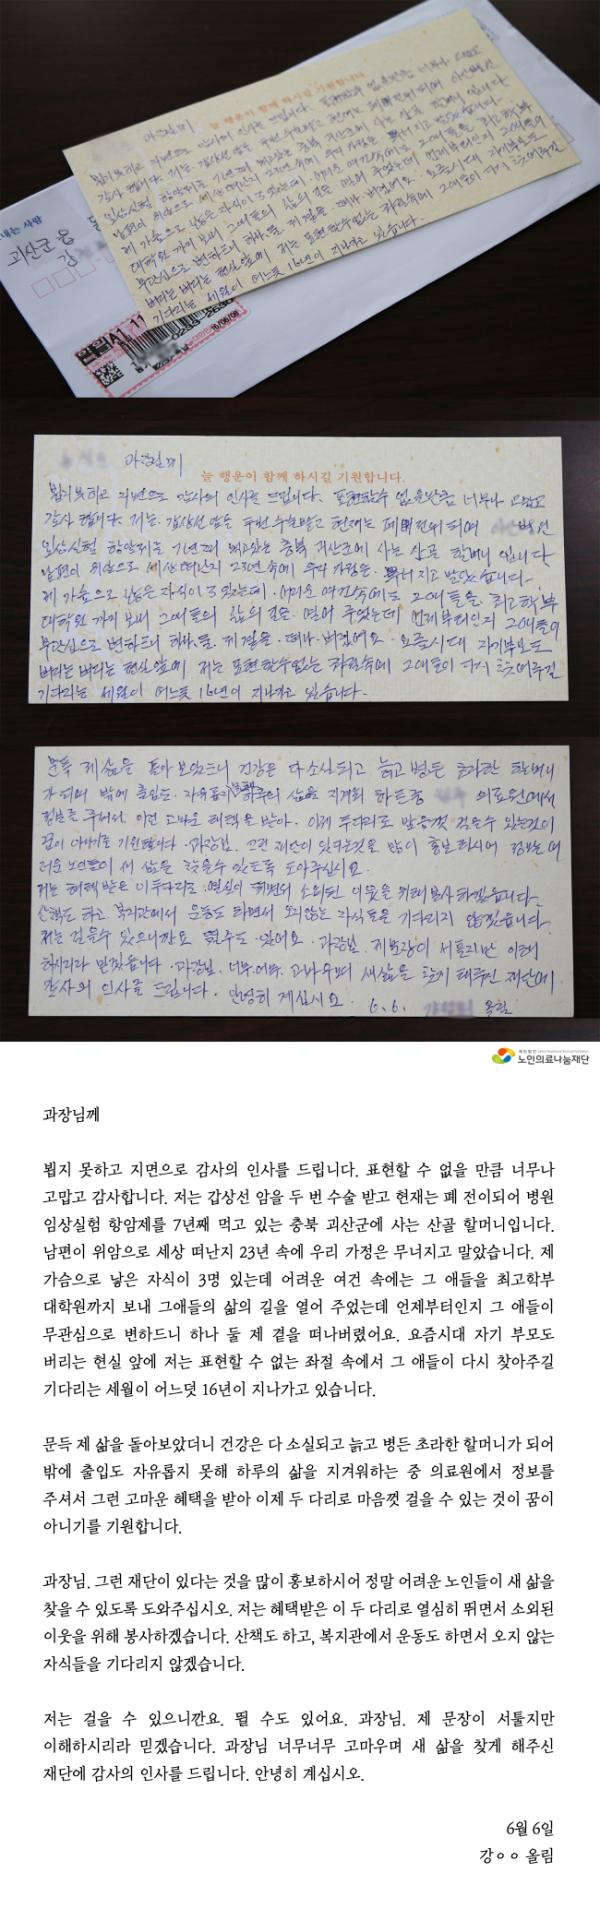 늘 행운이 함께 하시길 기원합니다
과장님께
괴산군
과장님께
늘 행운이 함께 하시길 기원합니다.
뵙지 못하고 지면으로 감사의 인사를 드립니다. 표현할수 없을만큼 너무나 고맙고
감사 합니다. 저는 갑상선 암을 두번 수술받고 현재는 폐 전위 되여 병원
임상실험 항암제를 7년째 먹고있는 충북 괴산군에 사는 산골 할머니 입니다
남편이 위암으로 세상 떠난지 23년속에 우리 가정은 무너지고 말았습니다.
제 가슴으로 낳은 자식이 3명 있는데 어려운 여건속에도 그애들을 최고학부
대학원 까지 보내 그애들의 삶의 길을 열어 주었는데 언제부터인지 그애들이
무관심으로 변하드니 하나. 둘. 제 곁을 떠나 버렸어요. 요즘시대 자기부모도
버리는 현실 앞에 저는 표현할수없는 좌절속에 그애들이 다시 찾어주길
기다리는 세월이 어느듯 16년이 지나가고 있습니다.
문득 제 삶을 돌아 보았드니 건강은 다 소실되고 늙고 병든 초라한 할머니
가 되어 밖에 출입도 자유롭지 하루의 삶을 지겨워 하든중 의료원에서
정보를 주셔서 이런 고마운 혜택을 받아. 이제 두다리로 마음껏 걸을수 있는것이
꿈이 아니기를 기원합니다. 과장님. 그런 재단이 있다는것을 많이 홍보하시어 정말 어
려운 노인들이 새 삶을 찾을수 있도록 도아주십시요.
저는 혜택받은 이 두다리로 열심히 뛰면서 소외된 이웃을 위해 봉사하겠습니다.
산책도 하고 복지관에서 운동도 하면서 오지않는 자식들을 기다리지 않겠습니다.
저는 걸을수 있으니깐요 뛸수도 있어요. 과장님. 제 문장이 서툴지만 이해
하시리라 믿겠습니다. 과장님. 너무너무 고마우며 새삶을 찾게 해주신 재단에
감사의 인사를 드립니다. 안녕히 계십시요. 6. 6. 올림
노인의료나눔재단
과장님께
뵙지 못하고 지면으로 감사의 인사를 드립니다. 표현할 수 없을 만큼 너무나
고맙고 감사합니다. 저는 갑상선 암을 두 번 수술 받고 현재는 폐 전이되어 병원
임상실험 항암제를 7년째 먹고 있는 충북 괴산군에 사는 산골 할머니입니다.
남편이 위암으로 세상 떠난지 23년 속에 우리 가정은 무너지고 말았습니다. 제
가슴으로 낳은 자식이 3명 있는데 어려운 여건 속에는 그 애들을 최고학부
대학원까지 보내 그애들의 삶의 길을 열어 주었는데 언제부터인지 그 애들이
무관심으로 변하드니 하나 둘 제 곁을 떠나버렸어요. 요즘시대 자기 부모도
버리는 현실 앞에 저는 표현할 수 없는 좌절 속에서 그 애들이 다시 찾아주길
기다리는 세월이 어느덧 16년이 지나가고 있습니다.
문득 제 삶을 돌아보았더니 건강은 다 소실되고 늙고 병든 초라한 할머니가 되어
밖에 출입도 자유롭지 못해 하루의 삶을 지겨워하는 중 의료원에서 정보를
주셔서 그런 고마운 혜택을 받아 이제 두 다리로 마음껏 걸을 수 있는 것이 꿈이
아니기를 기원합니다.
과장님. 그런 재단이 있다는 것을 많이 홍보하시어 정말 어려운 노인들이 새 삶을
찾을 수 있도록 도와주십시오. 저는 혜택받은 이 두 다리로 열심히 뛰면서 소외된
이웃을 위해 봉사하겠습니다. 산책도 하고, 복지관에서 운동도 하면서 오지 않는
자식들을 기다리지 않겠습니다.
저는 걸을 수 있으니깐요. 뛸 수도 있어요. 과장님. 제 문장이 서툴지만
이해하시리라 믿겠습니다. 과장님 너무너무 고마우며 새 삶을 찾게 해주신
재단에 감사의 인사를 드립니다. 안녕히 계십시오.
6월 6일
강ㅇㅇ 올림